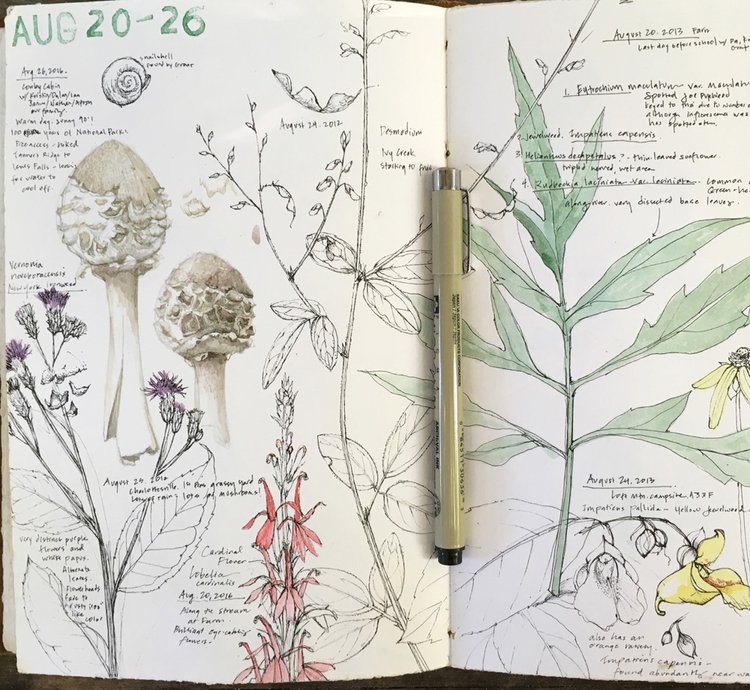 AUG 20-26
snailshell
found by Grace
Aug 26, 2016.
Cowboy Cabin
our family.
Warm day. Sunny 90's
100 years of National Parks
Ridge to
Falls -
for water to
cool off.
August 24 2012
Desmodium
Ivy Creek
starting to fruit
Vernonia
noveboracensis
New York Ironweed
August 25, 2012
Charlottesville. In the grassy yard
Lots of rain, lots of mushrooms!
very distinct purple
flowers and
white papus.
Alternate
leaves
flowerheads
fade to
"rusty iron"
like
color
Cardinal
Flower
Lobelia
cardinalis
Aug. 20, 2016
Along the stream
at Farm
Brilliant eye-catching
flowers.
August 20, 2013 Farm
Last day before school w/
1. Eutrochium maculatum var. maculatum
Spotted Joe Pyeweed
keyed to this due to number
although inflorescence was
has spotted stem.
2. Jewelweed. Impatiens capensis.
3. Helianthus decapetalus? - thin leaved sunflower.
triple nerved, wet area
4. Rudbeckia laciniata var. laciniata. Common
Green-he
along river. very dissected base leaves.
August 24, 2013
Loft Mtn. campsite A33F
Impatiens pallida - Yellow Jewelweed
also has an
orange variety.
Impatiens capensis -
found abundantly near